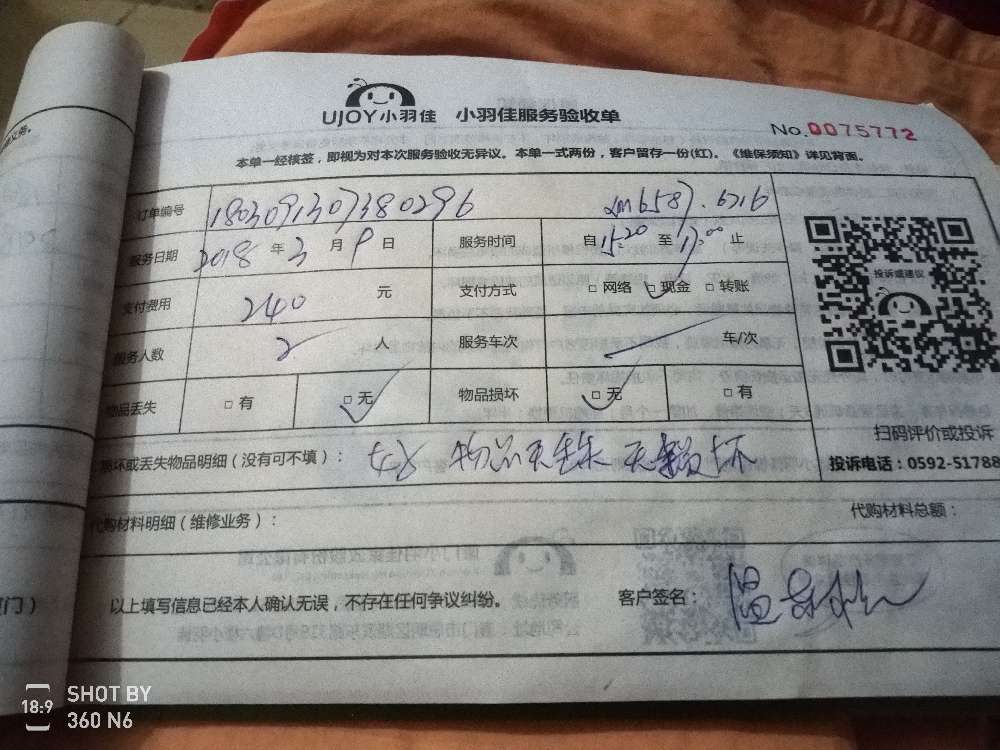 UJOY小羽佳 小羽佳服务验收单
No.0075772
本单一经核签，即视为对本次服务验收无异议。本单一式两份，客户留存一份(红)。《维保须知》详见背面。
订单编号 1803091307380296
服务日期 2018 年 3 月 9 日 服务时间 自 15:20 至 17:00 止
支付费用 240 元 支付方式 □ 网络 □ 现金 □ 转账
服务人数 2 人 服务车次 车/次
物品丢失 □ 有 □ 无 物品损坏 □ 无 □ 有
投诉或建议
扫码评价或投诉
投诉电话：0592-51788
损坏或丢失物品明细（没有可不填）： 物品无丢失 无损坏
代购材料明细（维修业务）： 代购材料总额：
以上填写信息已经本人确认无误，不存在任何争议纠纷。 客户签名： 温
部门）
18:9 SHOT BY
360 N6